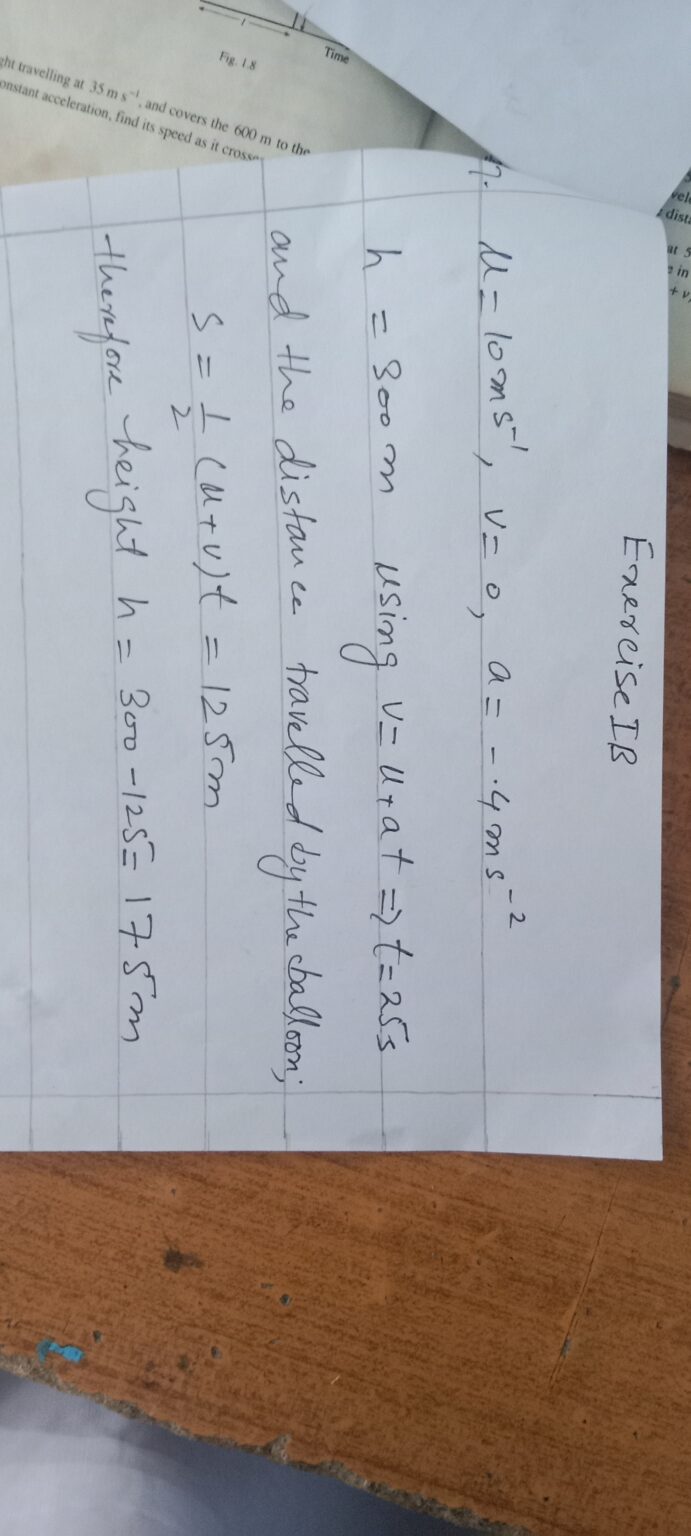 Time
Fig. 1.8
ght travelling at 35 m s⁻¹, and covers the 600 m to the
onstant acceleration, find its speed as it crosse
at 5
in
+ v
Exercise IB
7. u = 10 ms⁻¹, v = 0, a = -.4 ms⁻²
h = 300 m using v = u + at => t = 25s
and the distance travelled by the balloon;
s = 1/2 (u+v)t = 125m
therefore height h = 300 - 125 = 175m